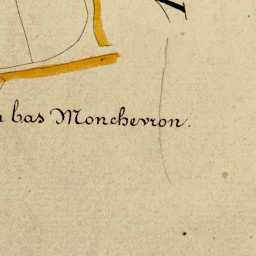 bas Monchevron.